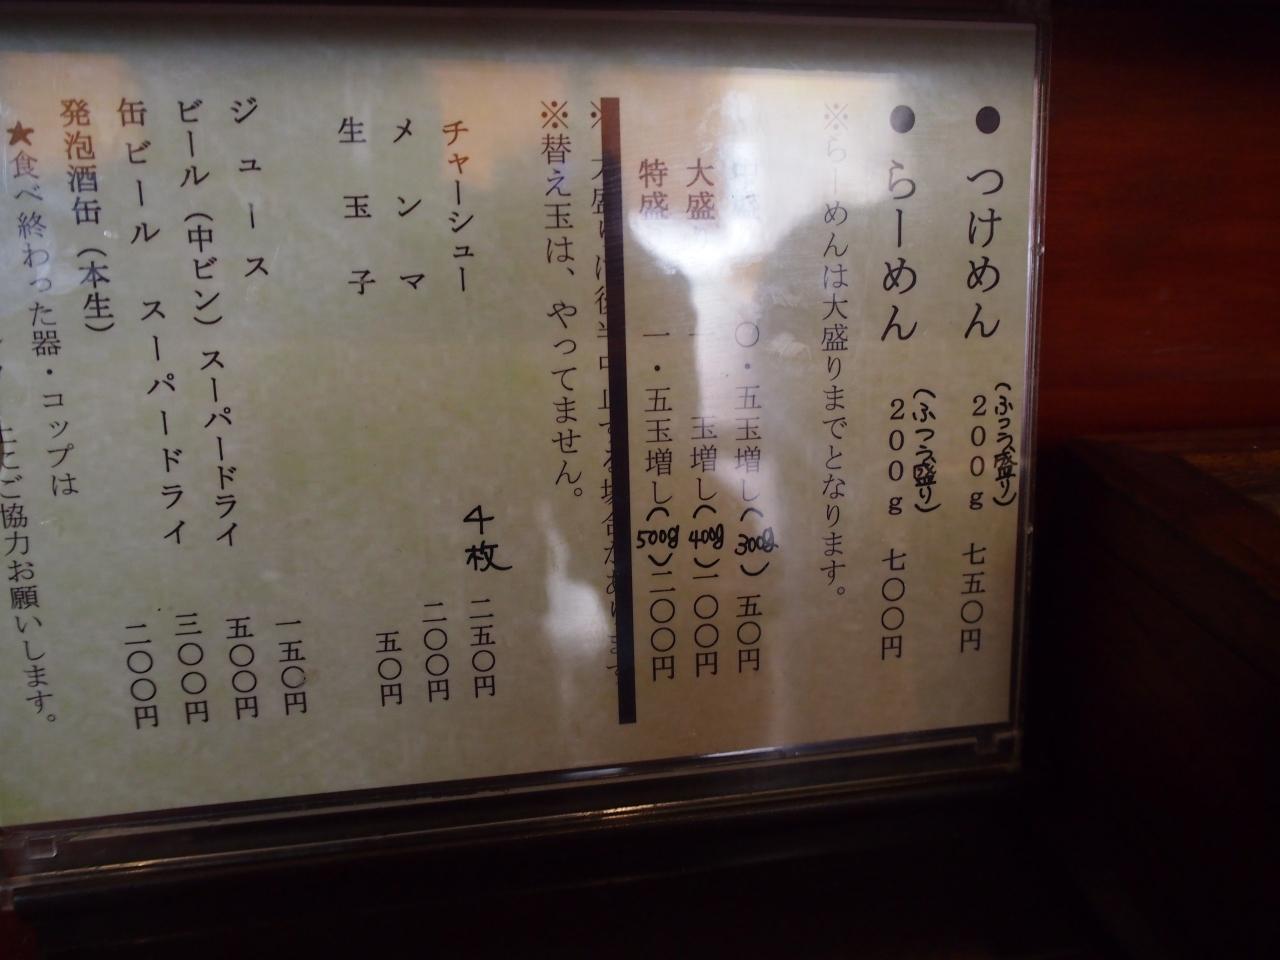 ●つけめん (ふつう盛り) 200g 七五〇円
●らーめん (ふつう盛り) 200g 七〇〇円
※らーめんは大盛りまでとなります。
中盛 〇・五玉増し(300g) 五〇円
大盛り 一 玉増し(400g) 一〇〇円
特盛 一・五玉増し(500g) 二〇〇円
※替え玉は、やってません。
チャーシュー 4枚 二五〇円
メンマ 二〇〇円
生玉子 五〇円
ジュース 一五〇円
ビール(中ビン) スーパードライ 五〇〇円
缶ビール スーパードライ 三〇〇円
発泡酒缶(本生) 二〇〇円
★食べ終わった器・コップは
ご協力お願いします。